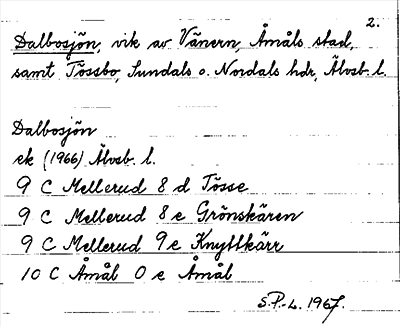 2.
Dalbosjön, vik av Vänern, Åmåls stad,
samt Tössbo, Sundals o. Nordals hdr, Älvsb. l.
Dalbosjön
ek (1966) Älvsb. l.
9 C Mellerud 8 d Tösse
9 C Mellerud 8 e Grönskären
9 C Mellerud 9 e Knyttkärr
10 C Åmål 0 e Åmål
S.P.-L. 1967.